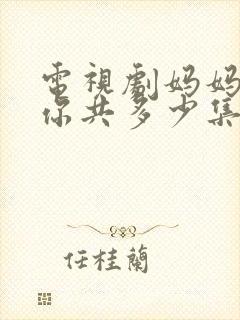 電視劇妈妈
你共多少集
任桂蘭